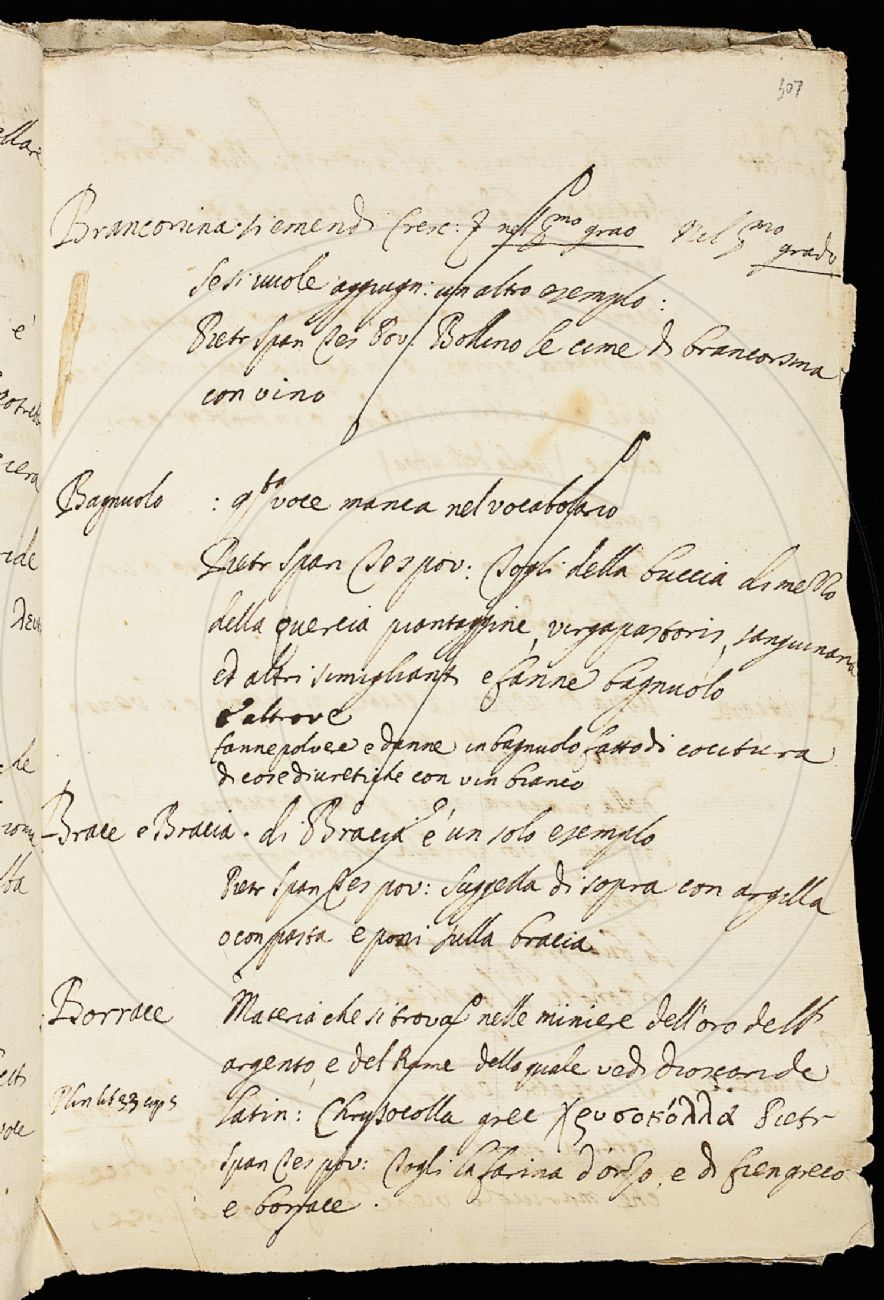 307
Brancorsina: si emendi Cresc: 7 nel 3mo grao Nel 3mo grado
Se si vuole aggiugn: un altro esemplo:
Pietr Span Tes Pov: Bollino le cime di brancorsina
con vino
Bagnuolo : qsta voce manca nel vocabolario
Pietr Span Tes pov: Togli della buccia di mezzo
della quercia piantaggine, virgapastoris, sanguinaria
ed altri simiglianti e fanne bagnuolo
e altrove
fanne polvere e danne in bagnuolo fatto di cocitura
di cose diuretiche con vin bianco
Brace e Bracia. di Bracia è un solo esemplo
Pietr Span Tes pov: suggella di sopra con argilla
o con pasta e poni sulla bracia
Borrace Materia che si trova nelle miniere dell'oro dell'
argento, e del Rame della quale vedi dioscoride
Plin lib 33 cap 5 latin: Chrysocolla grec χρυσοκόλλα Pietr
Span Tes pov: Togli la farina d'orzo, e di fiengreco
e borrace.